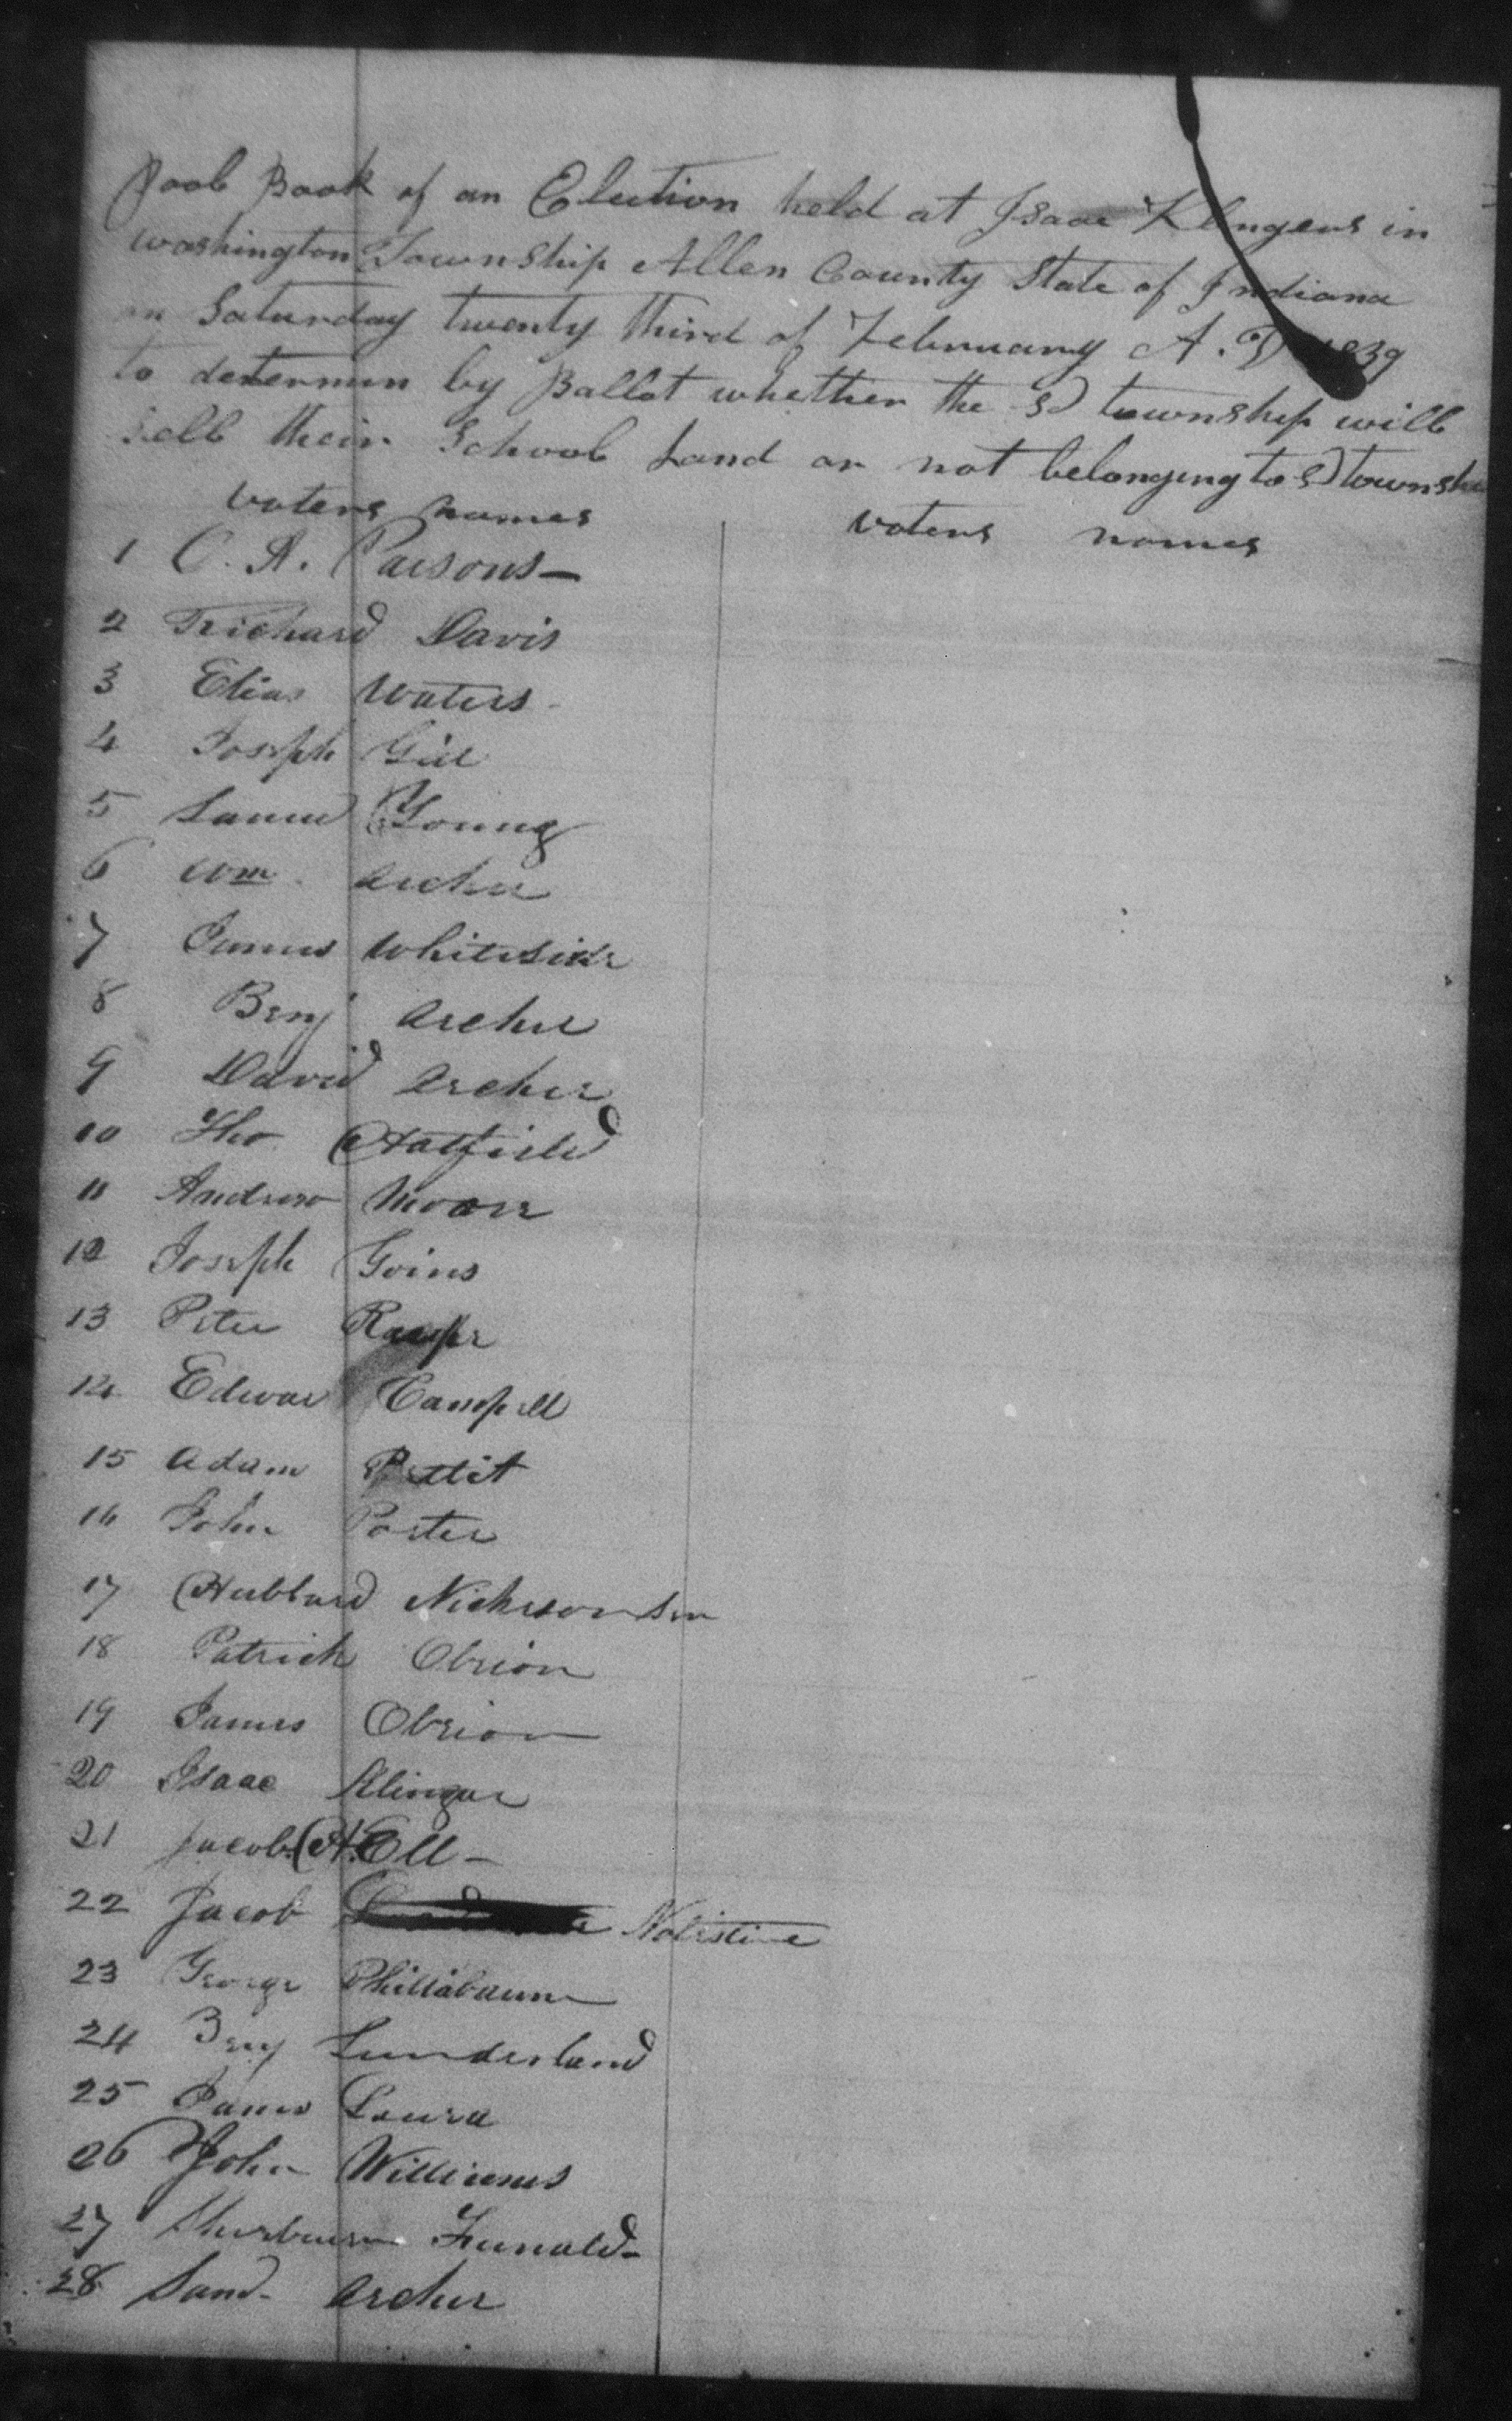 Pool Book of an Election held at Isaac Klingers in
Washington Township Allen County State of Indiana
on Saturday twenty third of February A.D 1839
to determin by Ballot whether the sd township will
sell their School Land or not belonging to sd townshi
voters names
voters names
1 C. A. Parsons
2 Richard Davis
3 Elias Waters
4 Joseph Gill
5 Young
6 Wm Archer
7 James Whiteside
8 Benj Archer
9 David Archer
10 Tho Hatfield
11 Andrew Moore
12 Joseph Goins
13 Peter
14 Edwar Campell
15 Adam Pettit
16 John Porter
17 Hubbard Nickerson
18 Patrick Obrion
19 James Obrion
20 Isaac Klinger
21 Jacob H. Ell
22 Jacob
23 George Phillabaum
24 Benj Sunderland
25 James
26 John Williams
27
28 Saml Archer